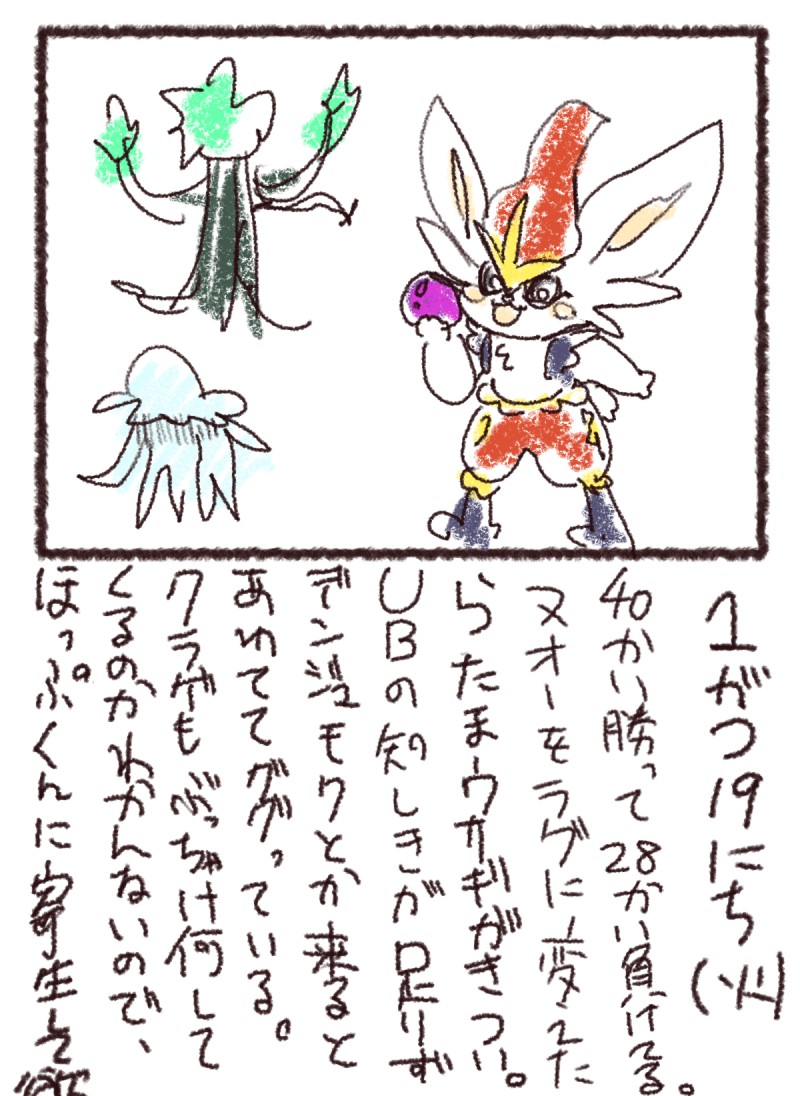 1がつ19にち(火)
40かい勝って28かい負けてる。
ヌオーをラグに変えた
らたまーウサギがきつい。
UBの知しきが足りず
デンジュモクとか来ると
あわててググっている。
クラゲもぶっちゃけ何して
くるのかわかんないので、
ほっぷくんに寄生して